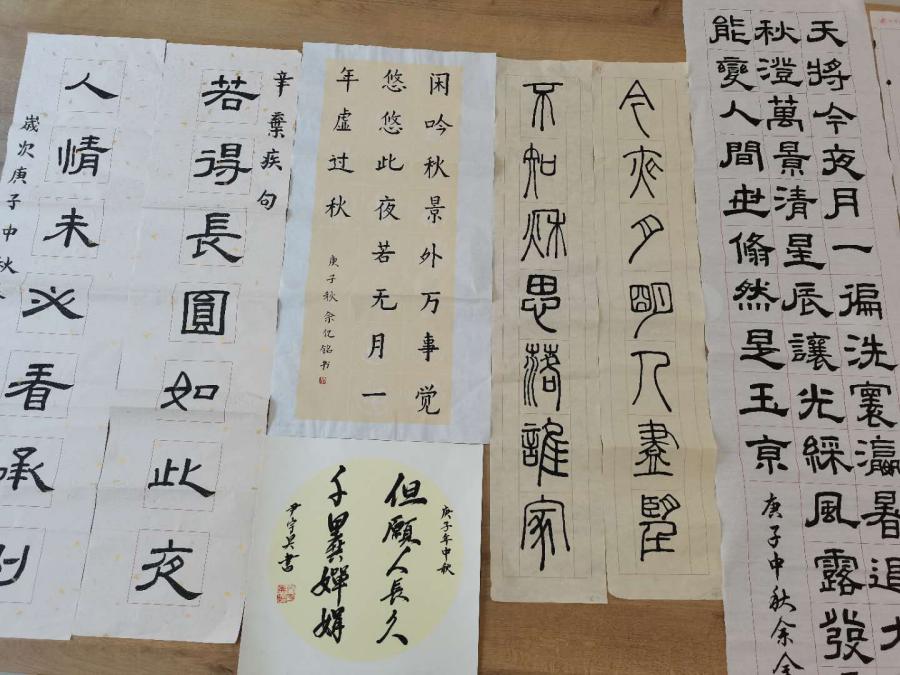 天將今夜月一遍洗寰瀛暑退九
秋澄萬景清星辰讓光綵風露發
能變人間世翛然是玉京
庚子中秋余
今夜月明人盡望
不知秋思落誰家
闲吟秋景外万事觉
悠悠此夜若无月一
年虚过秋
庚子秋余亿铭书
庚子年中秋
但願人長久
千里共嬋娟
辛棄疾句
若得長圓如此夜
人情未必看承
歲次庚子中秋